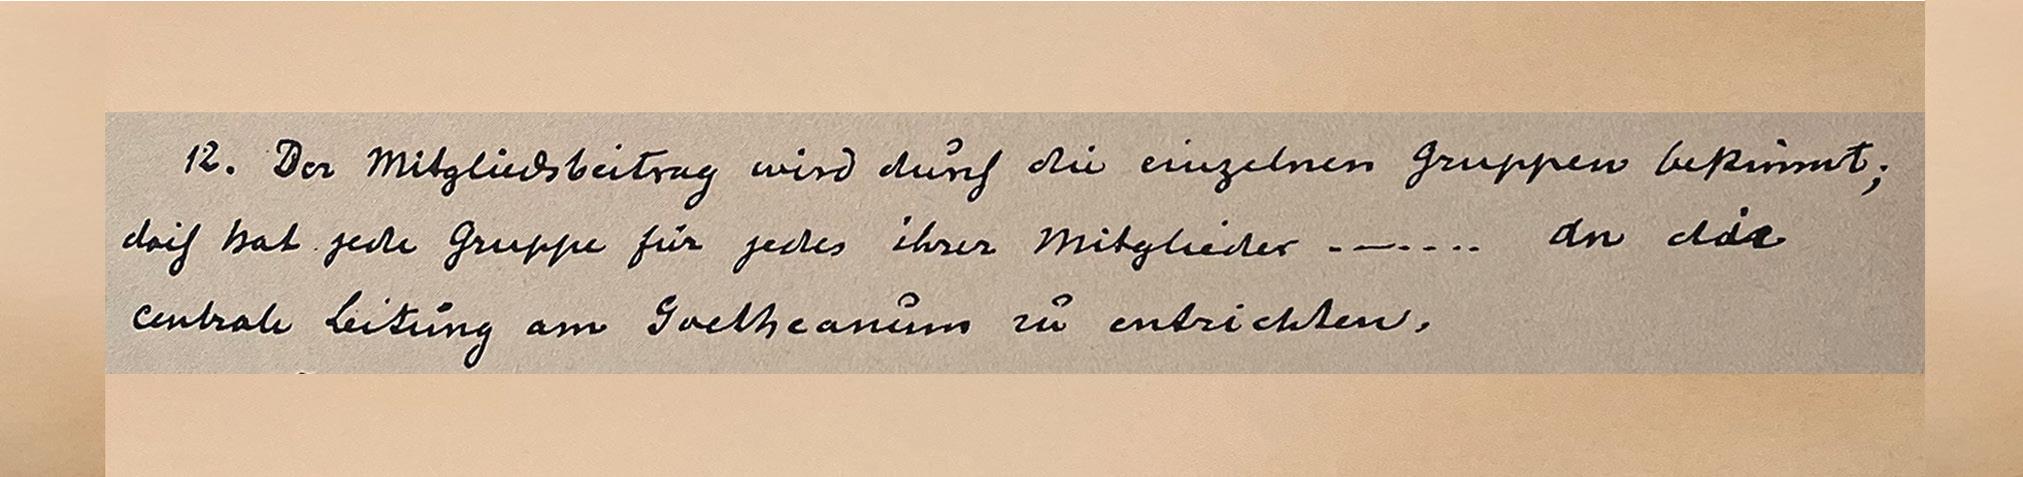 12. Der Mitgliedsbeitrag wird durch die einzelnen Gruppen bestimmt;
doch hat jede Gruppe für jedes ihrer Mitglieder - — - . . . . an die
centrale Leitung am Goetheanum zu entrichten.